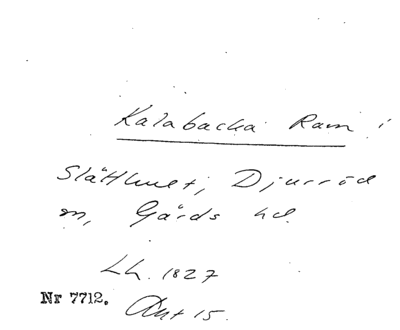 Kalabacka Ram i
Slätthult, Djurröd
sn, Gärds hd.
Lh. 1827
Nr 7712. Akt 15.